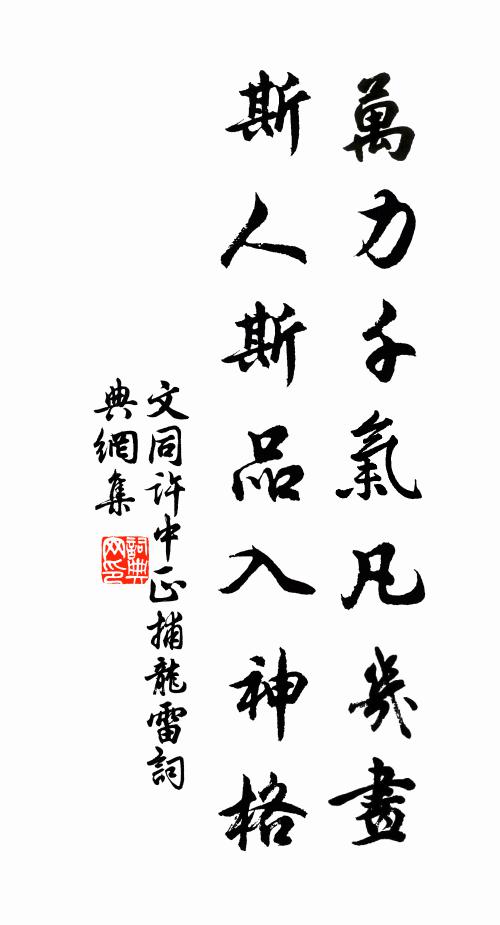 萬力千氣凡幾畫
斯人斯品入神格
文同許中正捕龍雷詞
典網集
詞典
网印